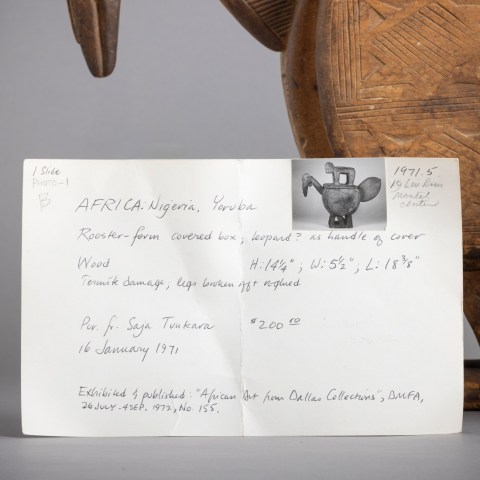 1 Slide
PHOTO-1
B
1971.5
Mantel
center
AFRICA. Nigeria, Yoruba
Rooster-form covered box; leopard? as handle of cover
Wood H: 14 1/4"; W: 5 1/2"; L: 18 3/8"
Termite damage; legs broken off + reglued
Pur. fr. Saja Tunkara $200 00
16 January 1971
Exhibited & published: "African Art from Dallas Collections", DMFA,
26 JULY - 4 SEP. 1972, No. 155.